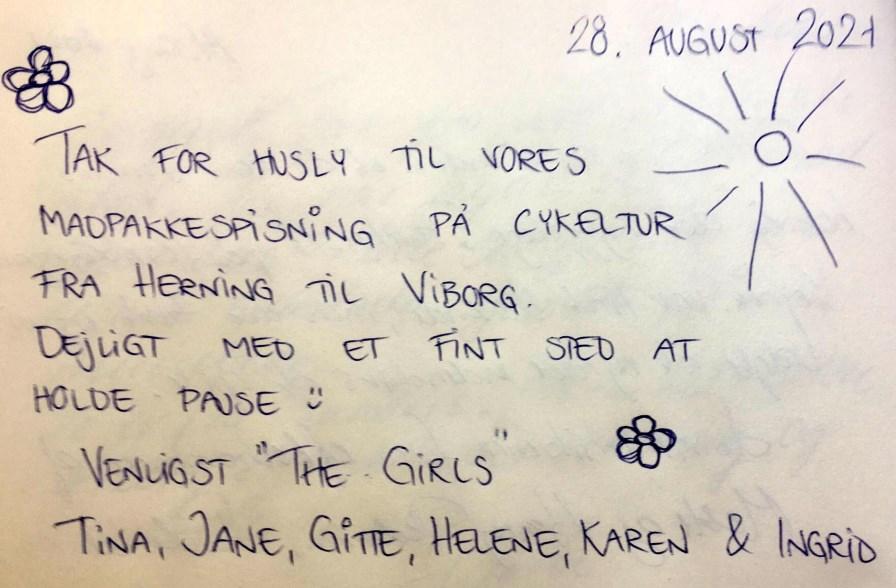 28. AUGUST 2021
TAK FOR HUSLY TIL VORES
MADPAKKESPISNING PÅ CYKELTUR
FRA HERNING TIL VIBORG.
DEJLIGT MED ET FINT STED AT
HOLDE PAUSE ü
VENLIGST "THE GIRLS"
TINA, JANE, GITTE, HELENE, KAREN & INGRID